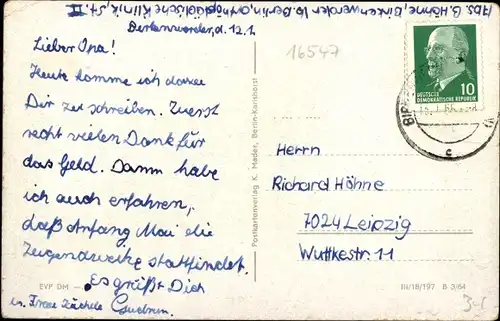 Abs. B. Höhne, Birkenwerder b. Berlin, orthopädische Klinik, St. III
Birkenwerder, d. 12.1.
Lieber Opa!
Heute komme ich dazu
Dir zu schreiben. Zuerst
recht vielen Dank für
das Geld. Dann habe
ich auch erfahren,
daß Anfang Mai die
Jugendweihe stattfindet.
Es grüßt Dich
Gudrun.
EVP DM
Postkartenverlag K. Mader, Berlin-Karlshorst
16547
10
DEUTSCHE
DEMOKRATISCHE REPUBLIK
c
Herrn
Richard Höhne
7024 Leipzig
Wuttkestr. 11
III/18/197 B 3/64